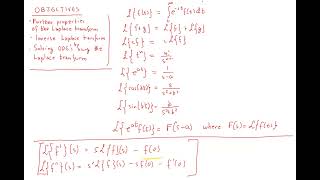 OBJECTIVES
- Further properties
of the Laplace transform
- Inverse Laplace transform
- Solving ODEs by using the
Laplace transform
ℒ{f(s)} = ∫₀^∞ e^{-st} f(t) dt
ℒ{f+g} = ℒ{f} + ℒ{g}
ℒ{cf} = cℒ{f}
ℒ{e^{at}} = 1/(s-a)
ℒ{cos(bt)} = s/(s²+b²)
ℒ{sin(bt)} = b/(s²+b²)
ℒ{e^{at} f(t)} = F(s-a) where F(s) = ℒ{f(t)}
ℒ{f'}(s) = sℒ{f}(s) - f(0)
ℒ{f''}(s) = s²ℒ{f}(s) - sf(0) - f'(0)